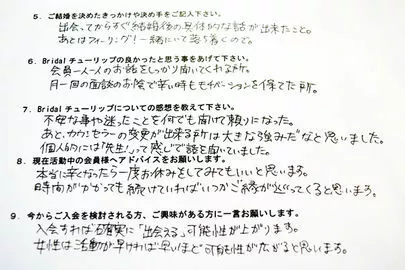 5．ご結婚を決めたきっかけや決め手をご記入下さい。
出会ってからすぐ結婚後の具体的な話が出来たこと。
あとはフィーリング！一緒にいて落ち着くので。
6．Bridalチューリップの良かったと思う事をあげて下さい。
会員一人一人のお話をしっかり聞いてくれる所。
月一回の面談のお陰で辛い時ももモチベーションを保てた所。
7．Bridalチューリップについての感想を教えて下さい。
不安な事や迷ったことを何でも聞けて頼りになった。
あと、カウンセラーの変更が出来る所は大きな強みだなと思いました。
個人的には「先生！」って感じで話を聞いていました。
8．現在活動中の会員様へアドバイスをお願いします。
本当に辛くなったら一度お休みをしてみてもいいと思います。
時間がかかっても続けていればいつかご縁が巡ってくると思います。
9．今からご入会を検討される方、ご興味がある方に一言お願いします。
入会すれば確実に「出会える」可能性が上がります。
女性は活動が早ければ早いほど可能性が広がると思います。